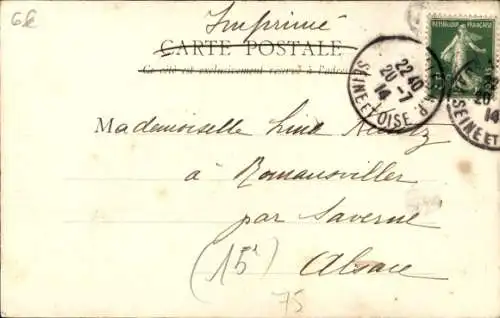 6€
Imprimé
CARTE POSTALE
Ce côté est exclusivement réservé à l'adresse
REPUBLIQUE FRANÇAISE
22 40
20 -7
14
SEINE ET OISE
20
14
SEINE ET
Mademoiselle
à Romansviller
par Saverne
(15)
Alsace
75